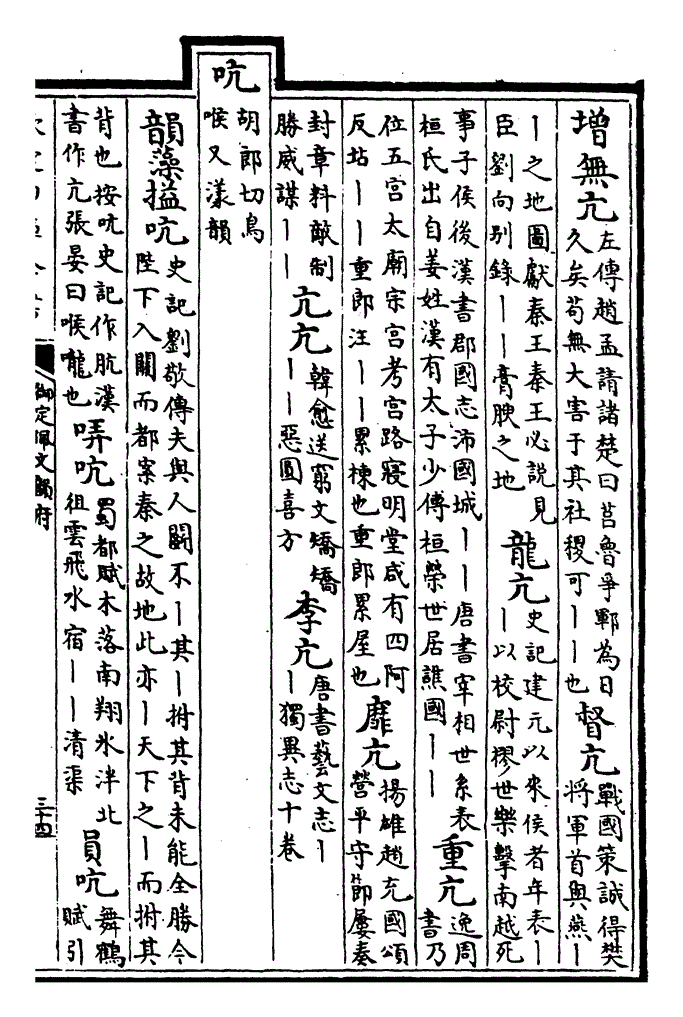 增無亢
左傳趙孟請諸楚曰莒魯爭鄆為日
久矣苟無大害于其社稷可丨丨也
督亢
戰國策誠得樊
將軍首與燕丨
丨之地圖獻秦王秦王必說見
臣劉向别錄丨丨膏腴之地
龍亢
史記建元以來侯者年表丨
丨以校尉摎世樂擊南越死
事子侯後漢書郡國志沛國城丨丨唐書宰相世系表
桓氏出自姜姓漢有太子少傅桓榮世居譙國丨丨
重亢
逸周
書乃
位五宫太廟宗宫考宫路寢明堂咸有四阿
反坫丨丨重郎注丨丨累棟也重郎累屋也
靡亢
揚雄趙充國頌
營平守節屢奏
封章料敵制
勝威謀丨丨
亢亢
韓愈送窮文矯矯
丨丨惡圓喜方
李亢
唐書藝文志丨
丨獨異志十卷
吭
胡郎切鳥
喉又漾韻
韻藻搤吭
史記劉敬傳夫與人鬬不丨其丨拊其背未能全勝今
陛下入關而都案秦之故地此亦丨天下之丨而拊其
背也按吭史記作肮漢
書作亢張晏曰喉嚨也
哢吭
蜀都賦木落南翔氷泮北
徂雲飛水宿丨丨清渠
員吭
舞鶴
賦引
御定佩文韻府
三十四